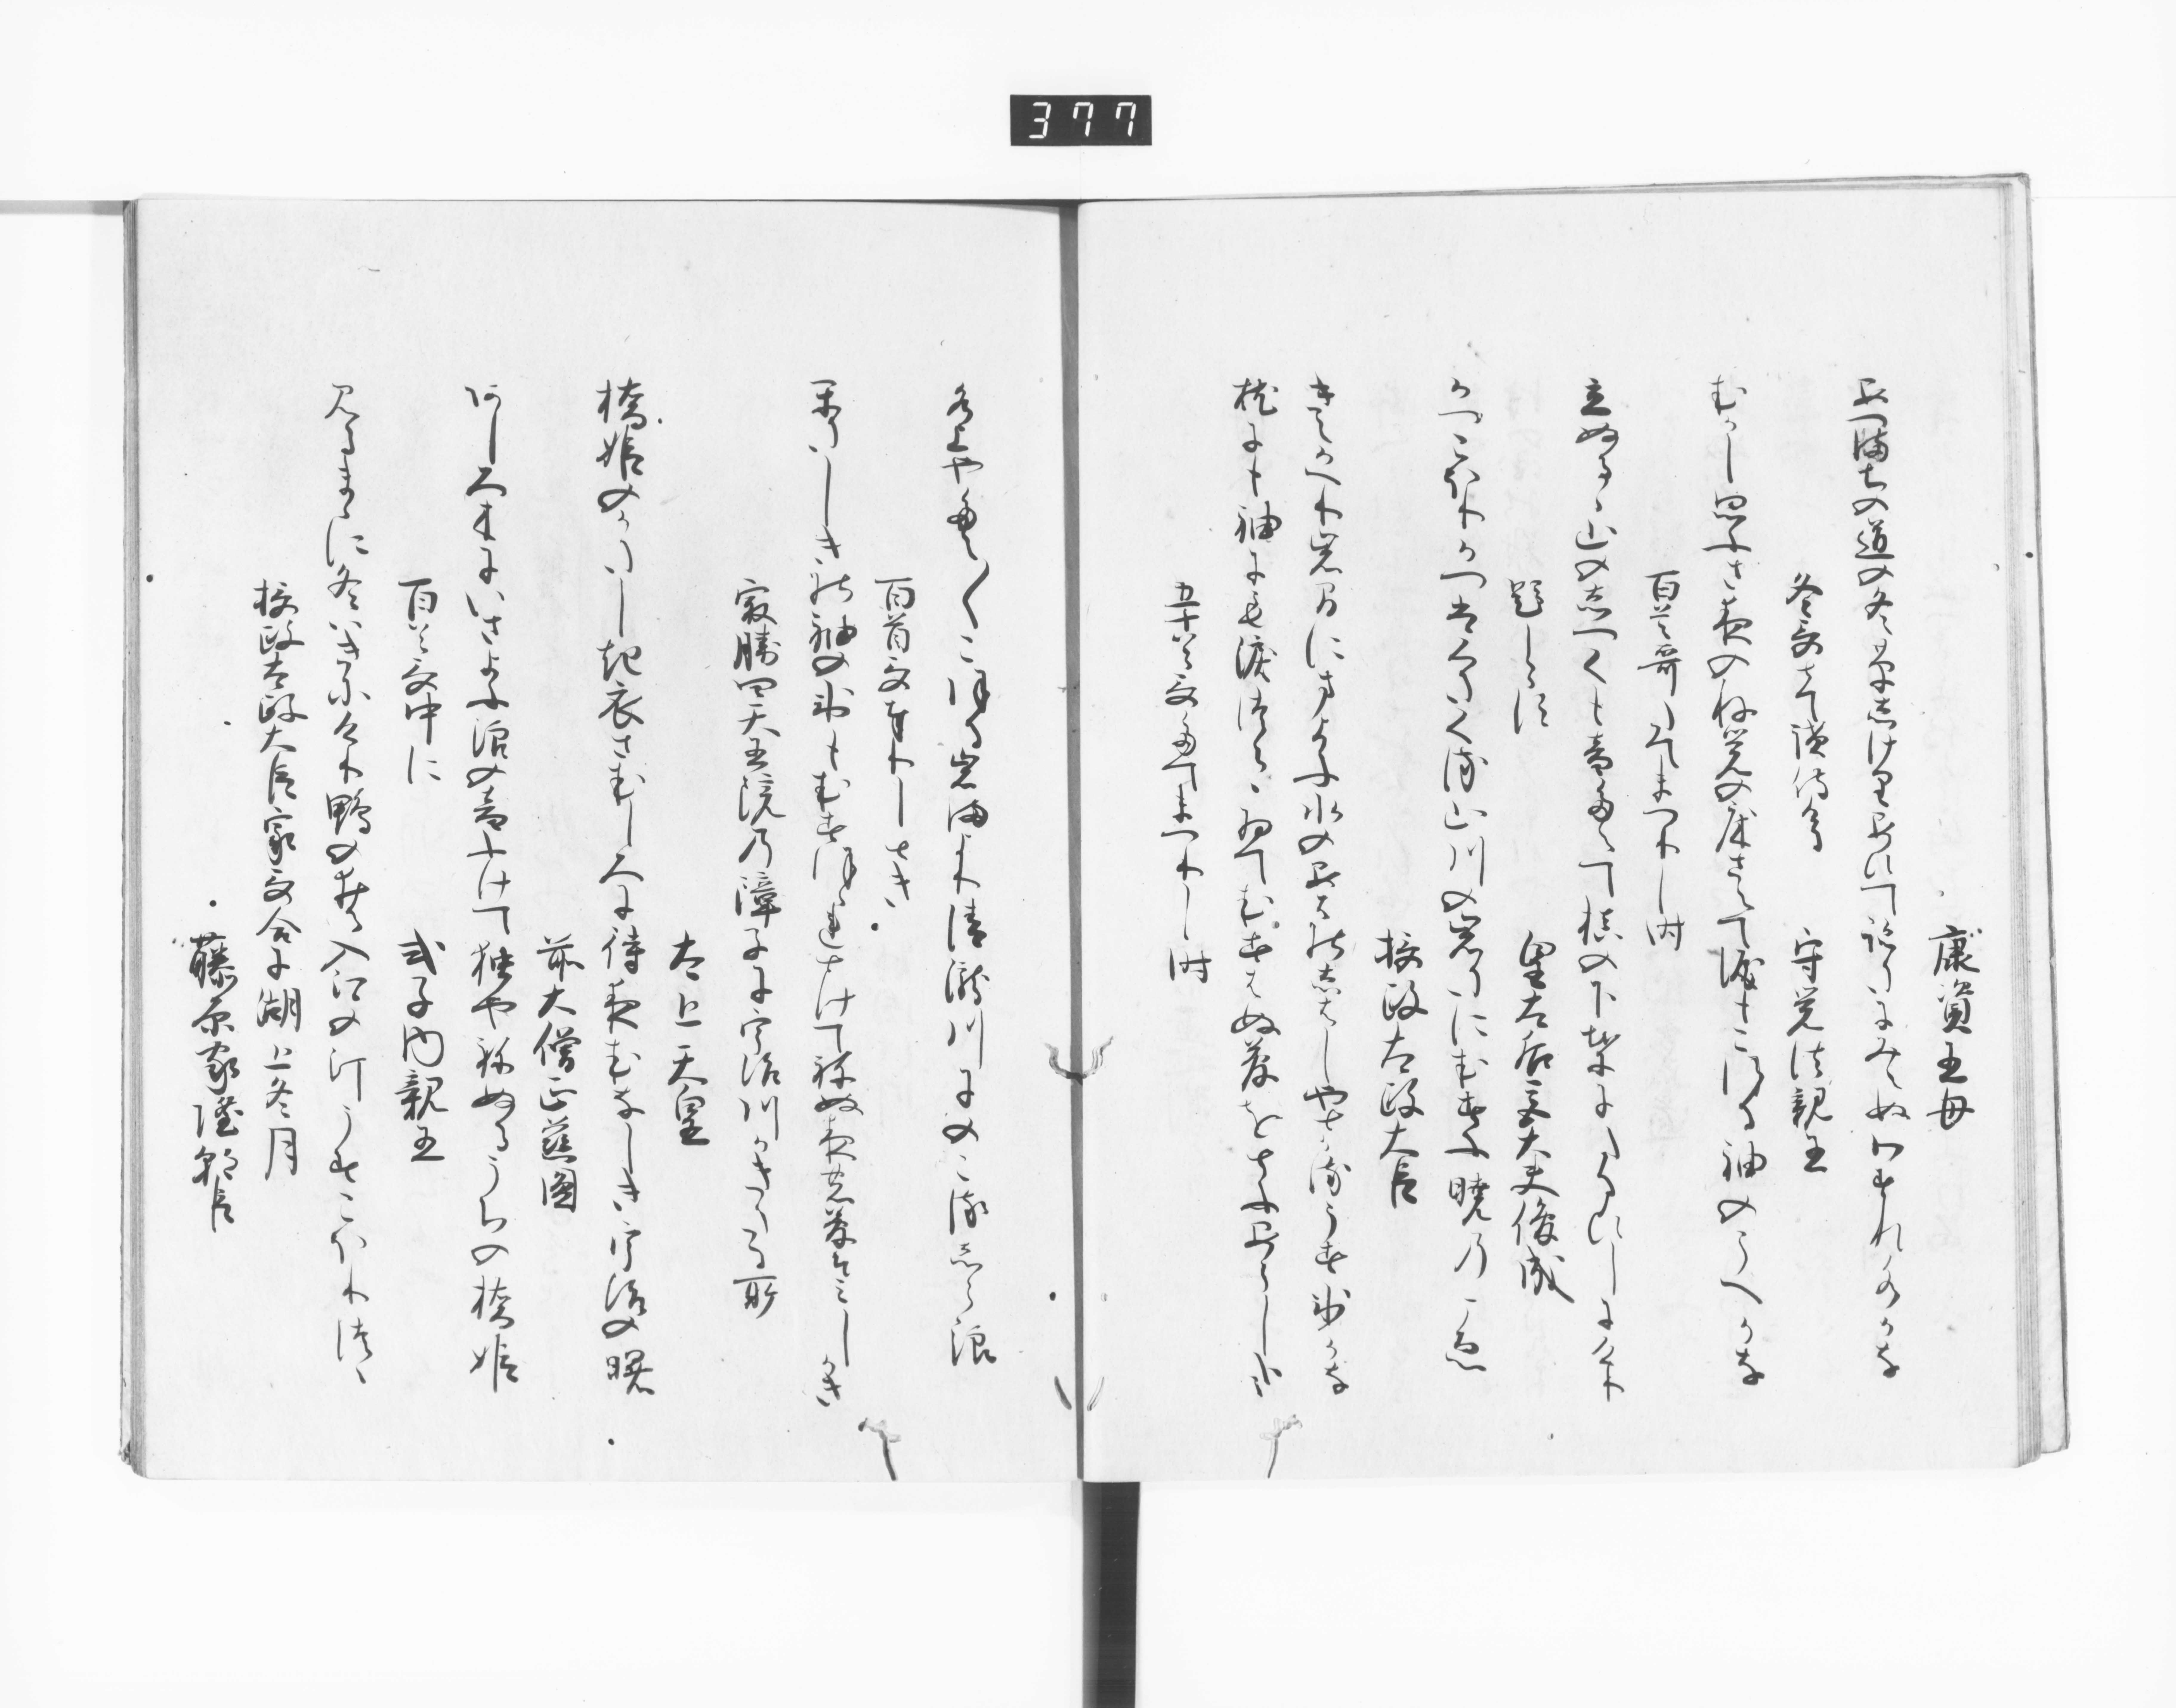 康資王母
あつま地の道の冬草志け里あひて跡たにみえぬわすれ水かな
冬哥とて讀侍ける　守覚法親王
むかし思ふさ夜のね覚の床さえて涙もこほる袖のうへかな
百首哥たてまつりし時
立ぬるゝ山のしつくも音たえて槙の下葉にたるひしにけり
題しらす　皇太后宮大夫俊成
かつこほりかつはくたくる山川の岩まにむすふ暁のこゑ
摂政太政大臣
きえかへり岩まにまよふ水のあはのしはしやとかるうす氷かな
枕にも袖にも涙つらゝゐてむすはぬ夢をとふあらしかな
五十首哥たてまつりし時
水上やたえ〱こほる岩まより清瀧川にのこるしら浪
百首哥奉りしとき
かたしきの袖の氷もむすほゝれとけてねぬ夜の夢そみしかき
最勝四天王院の障子に宇治川かきたる所
太上天皇
橋姫のかたしき衣さむしろに待夜むなしき宇治の曙
前大僧正慈圓
あしろ木にいさよふ浪の音ふけて独やねぬるうちの橋姫
百首哥中に　式子内親王
みるまゝに冬はきにけり鴨のゐる入江の汀うすこほりつゝ
摂政太政大臣家哥合に湖上冬月
藤原家隆朝臣
377